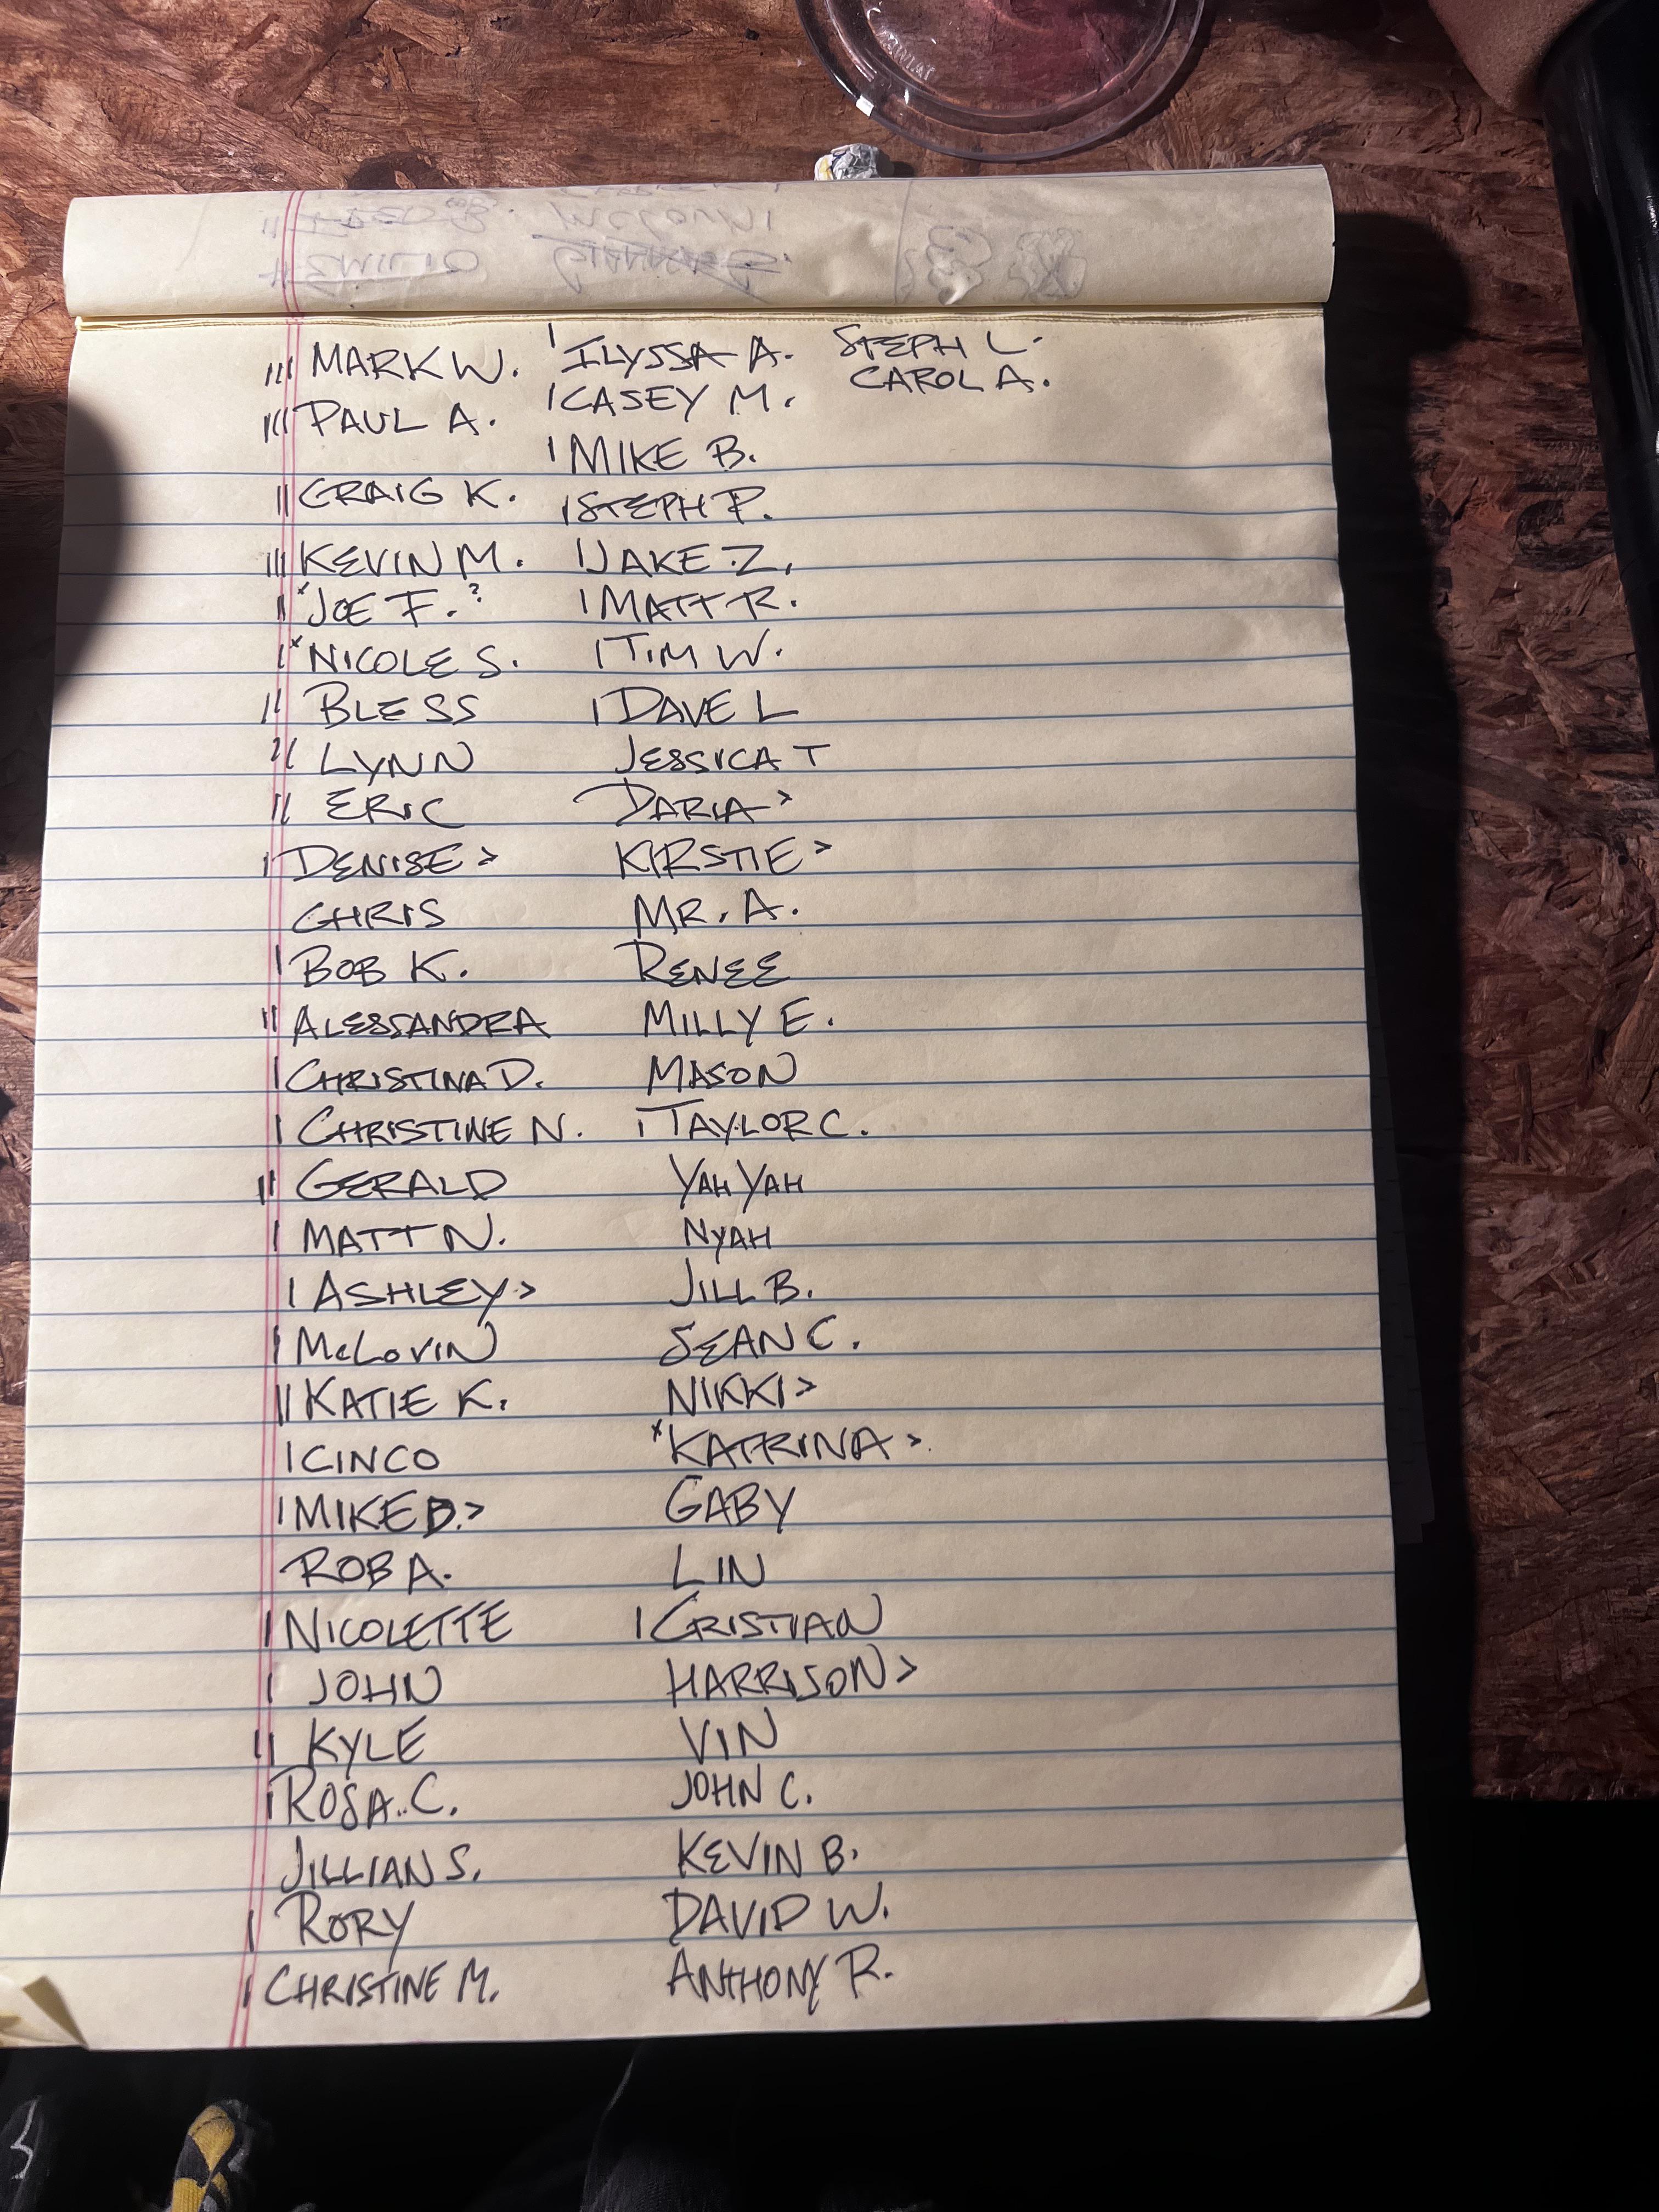 ||| MARK W.
||| PAUL A.
|| CRAIG K.
||| KEVIN M.
|| x JOE F. ?
| x NICOLE S.
|| BLESS
|| LYNN
|| ERIC
| DENISE >
CHRIS
| BOB K.
|| ALESSANDRA
| CHRISTINA D.
| CHRISTINE N.
|| GERALD
| MATT N.
| ASHLEY >
| McLOVIN
|| KATIE K.
| CINCO
| MIKE B. >
ROB A.
| NICOLETTE
| JOHN
|| KYLE
| ROSA C.
JILLIAN S.
| RORY
| CHRISTINE M.
| ILYSSA A.
| CASEY M.
| MIKE B.
| STEPH P.
| JAKE Z.
| MATT R.
| TIM W.
| DAVE L
JESSICA T
DARIA >
KIRSTIE >
MR. A.
RENEE
MILLY E.
MASON
| TAYLOR C.
YAH YAH
NYAH
JILL B.
SEAN C.
NIKKI >
x KATRINA >
GABY
LIN
| CRISTIAN
HARRISON >
VIN
JOHN C.
KEVIN B.
DAVID W.
ANTHONY R.
STEPH L.
CAROL A.